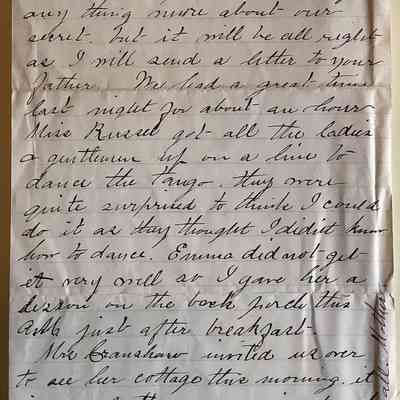 any thing more about our
secret. but it will be all right
as I will send a letter to your
father. We had a great time
last night for about an hour
Miss Russel got all the ladies
& gentlemen up on a line to
dance the Tango. they were
quite surprised to think I could
do it as they thought I didn't know
how to dance. Emma did not get
it very well so I gave her a
lesson on the back porch this
A.M. just after breakfast.
Mrs Cranshaw invited us over
to see her cottage this morning. it